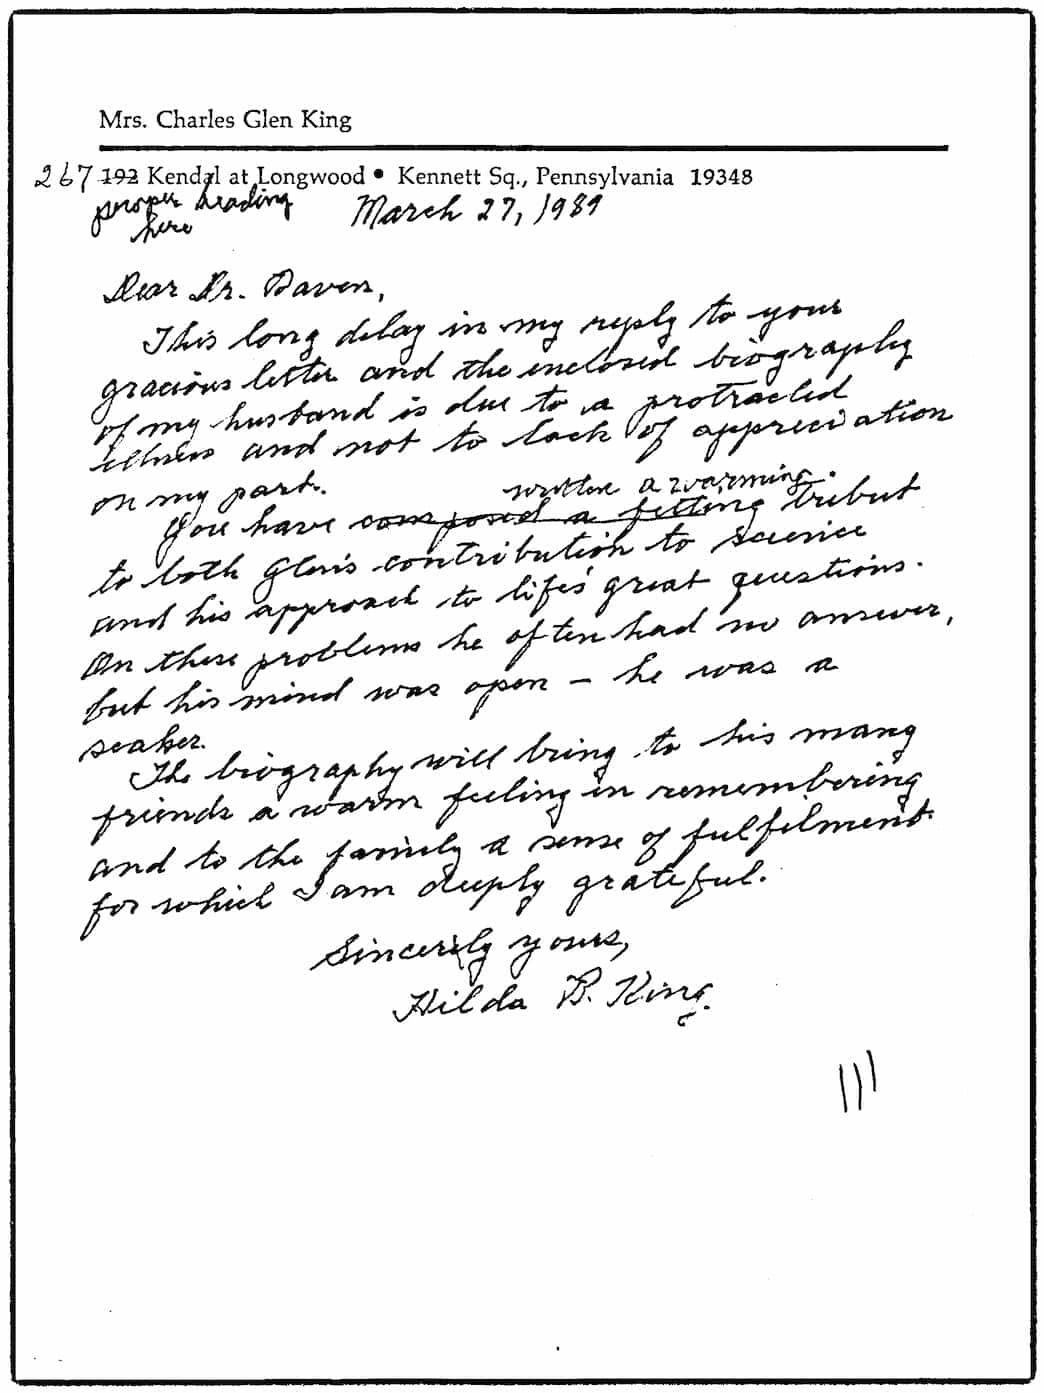 Mrs. Charles Glen King
267 192 Kendal at Longwood • Kennett Sq., Pennsylvania 19348
proper heading
here
March 27, 1989
Dear Dr. Daven,
This long delay in my reply to your
gracious letter and the enclosed biography
of my husband is due to a protracted
illness and not to lack of appreciation
on my part.
written a warming
You have composed a fitting tribut
to both Glen's contribution to science
and his approach to life's great questions.
On these problems he often had no answer,
but his mind was open – he was a
seaker.
The biography will bring to his many
friends a warm feeling in remembering
and to the family a sense of fulfilment
for which I am deeply grateful.
Sincerely yours,
Hilda B. King.